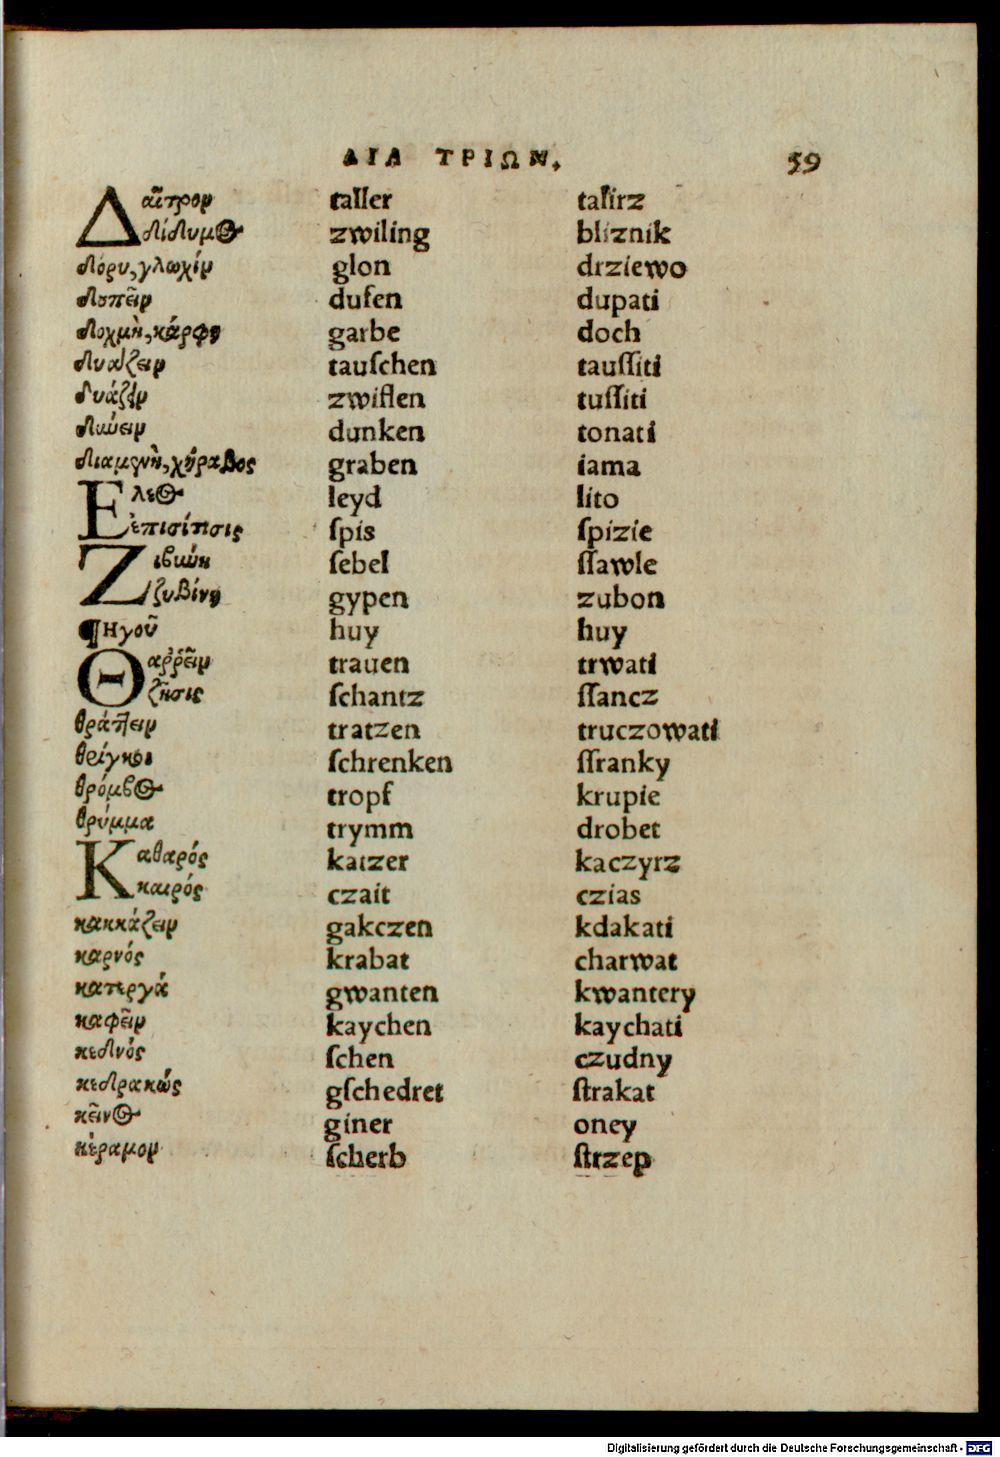 ΔΙΑ ΤΡΙΩΝ. 59
Δαῖτρον taller talirz
δίδυμος zwiling bliznik
δόρυ, γλωχίν glon drziewo
δουπεῖν dusen dupati
δοχμὴ, κάρφη garbe doch
δυάζειν tauſchen tauſſiti
δυάζειν zwiflen tuſſiti
dunken tonati
graben iama
Ελεος leyd lito
ἐπισίτισις ſpis ſpizie
Ζιβύνη ſebel ſſawle
ζυβίνη gypen zubon
¶Ηγοῦ huy huy
Θαῤῥεῖν trauen trwati
ſchantz ſſancz
θράττειν tratzen truczowati
θριγκοι ſchrenken ſſranky
θρόμβος tropf krupie
θρύμμα trymm drobet
Καθαρός katzer kaczyrz
καιρός czait czias
κακκάζειν gakczen kdakati
καρνός krabat charwat
κατεργά gwanten kwantery
καφεῖν kaychen kaychati
κεδνός ſchen czudny
κεδρακώς gſchedret ſtrakat
κεῖνος giner oney
κέραμον ſcherb ſtrzep
Digitalisierung gefördert durch die Deutsche Forschungsgemeinschaft - DFG